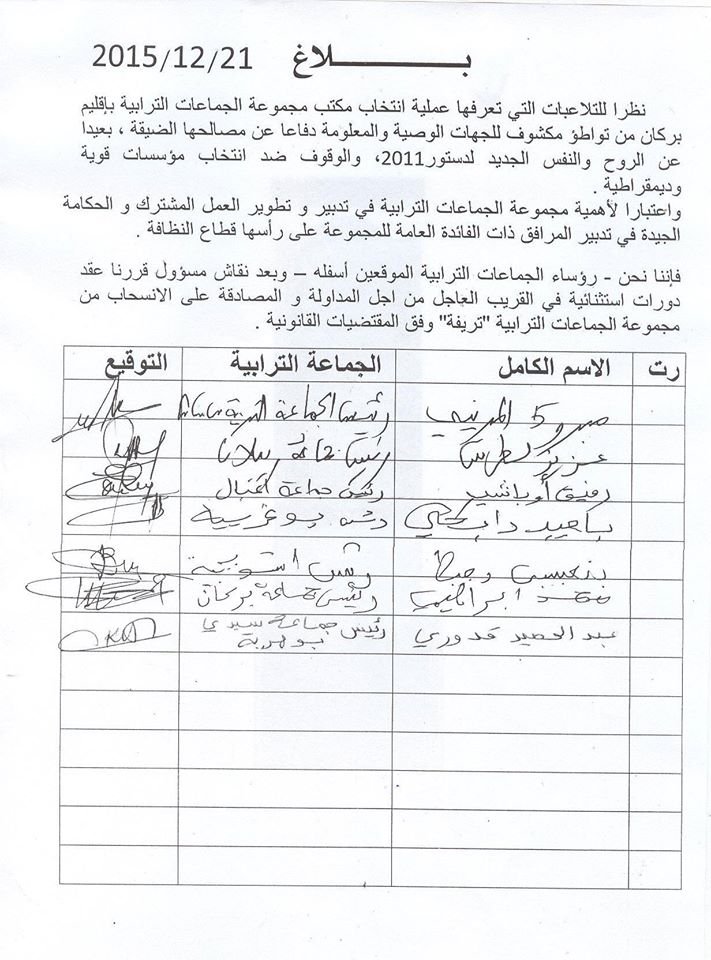 بـــــــــــلاغ 2015/12/21
نظرا للتلاعبات التي تعرفها عملية انتخاب مكتب مجموعة الجماعات الترابية بإقليم
بركان من تواطؤ مكشوف للجهات الوصية والمعلومة دفاعا عن مصالحها الضيقة ، بعيدا
عن الروح والنفس الجديد لدستور2011، والوقوف ضد انتخاب مؤسسات قوية
وديمقراطية .
واعتبارا لأهمية مجموعة الجماعات الترابية في تدبير و تطوير العمل المشترك و الحكامة
الجيدة في تدبير المرافق ذات الفائدة العامة للمجموعة على رأسها قطاع النظافة .
فإننا نحن - رؤساء الجماعات الترابية الموقعين أسفله – وبعد نقاش مسؤول قررنا عقد
دورات استثنائية في القريب العاجل من اجل المداولة و المصادقة على الانسحاب من
مجموعة الجماعات الترابية "تريفة" وفق المقتضيات القانونية .
رت الاسم الكامل الجماعة الترابية التوقيع
رئيس الجماعة الترابية
عزيز
رفيق أوباشير رئيس جماعة أغبال
بوغريبة
رئيس
ابراهيمي رئيس جماعة بركان
عبد الحميد قدوري رئيس جماعة سيدي
بوهرية